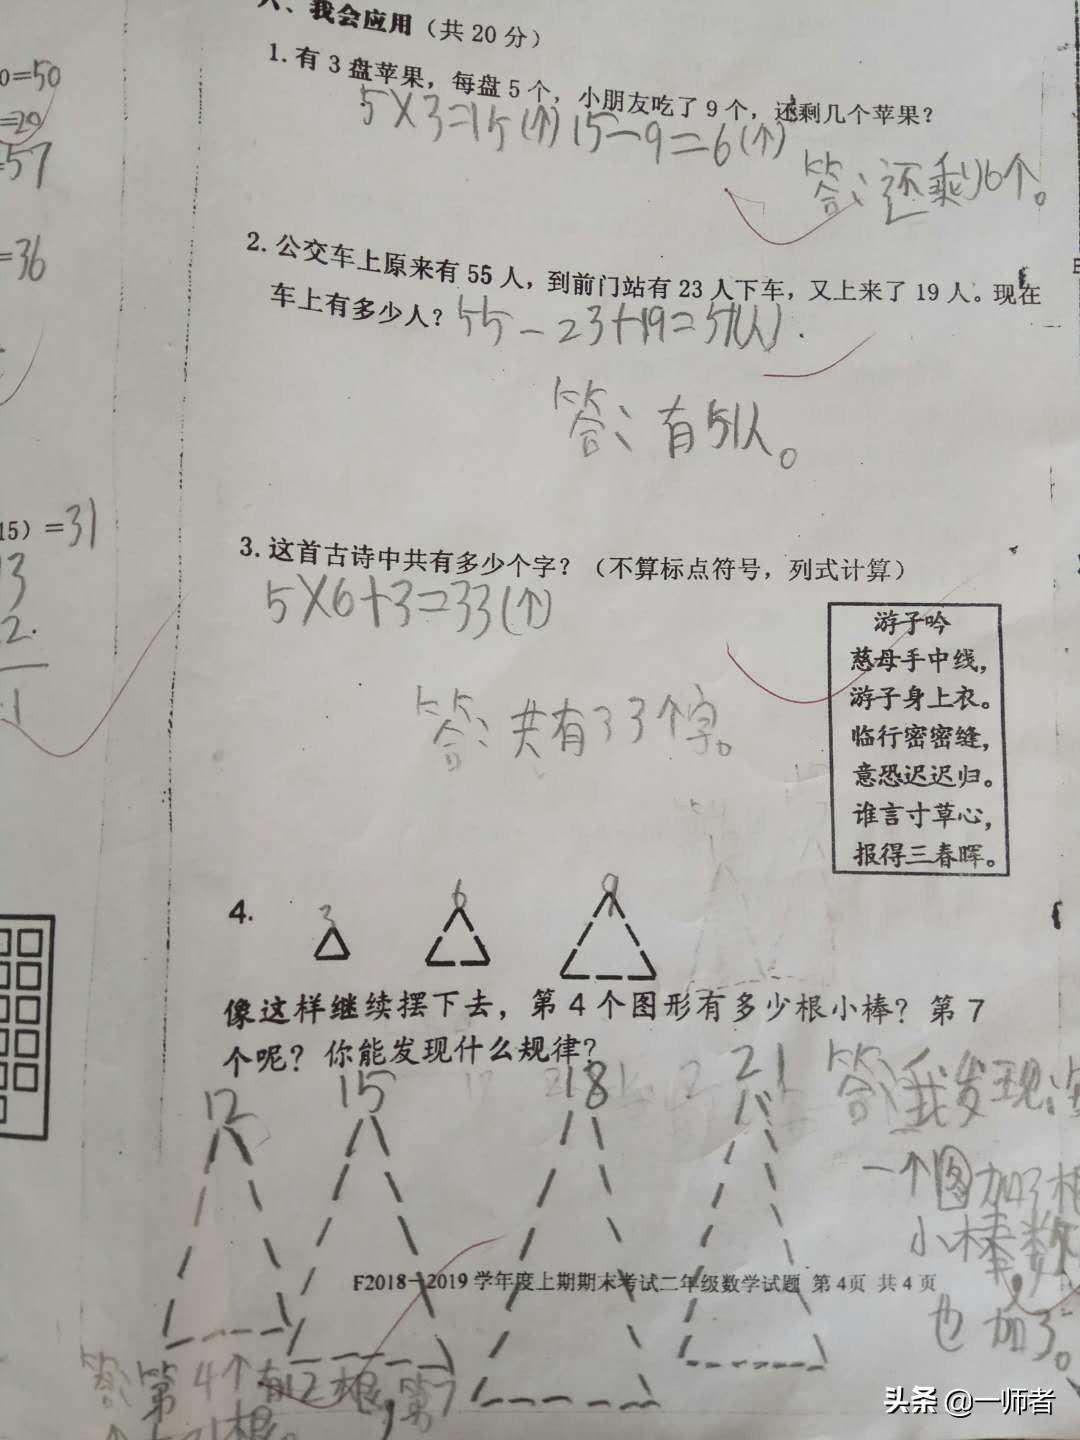 六、我会应用（共20分）
0=50
=29
=57
=36
15）=31
1.有3盘苹果，每盘5个，小朋友吃了9个，还剩几个苹果？
5×3=15(个) 15-9=6(个)
答：还剩6个。
2.公交车上原来有55人，到前门站有23人下车，又上来了19人。现在
车上有多少人？ 55-23+19=51(人)
答：有51人。
3.这首古诗中共有多少个字？（不算标点符号，列式计算）
5×6+3=33(个)
答：共有33个字。
游子吟
慈母手中线，
游子身上衣。
临行密密缝，
意恐迟迟归。
谁言寸草心，
报得三春晖。
4.
3 6 9
像这样继续摆下去，第4个图形有多少根小棒？第7
个呢？你能发现什么规律？
12 15 18 21
答：我发现：
一个图加3根
小棒，数
也加3。
F2018-2019学年度上期期末考试二年级数学试题 第4页 共4页
答：第4个有12根，第7
个21根。
头条 @一师者